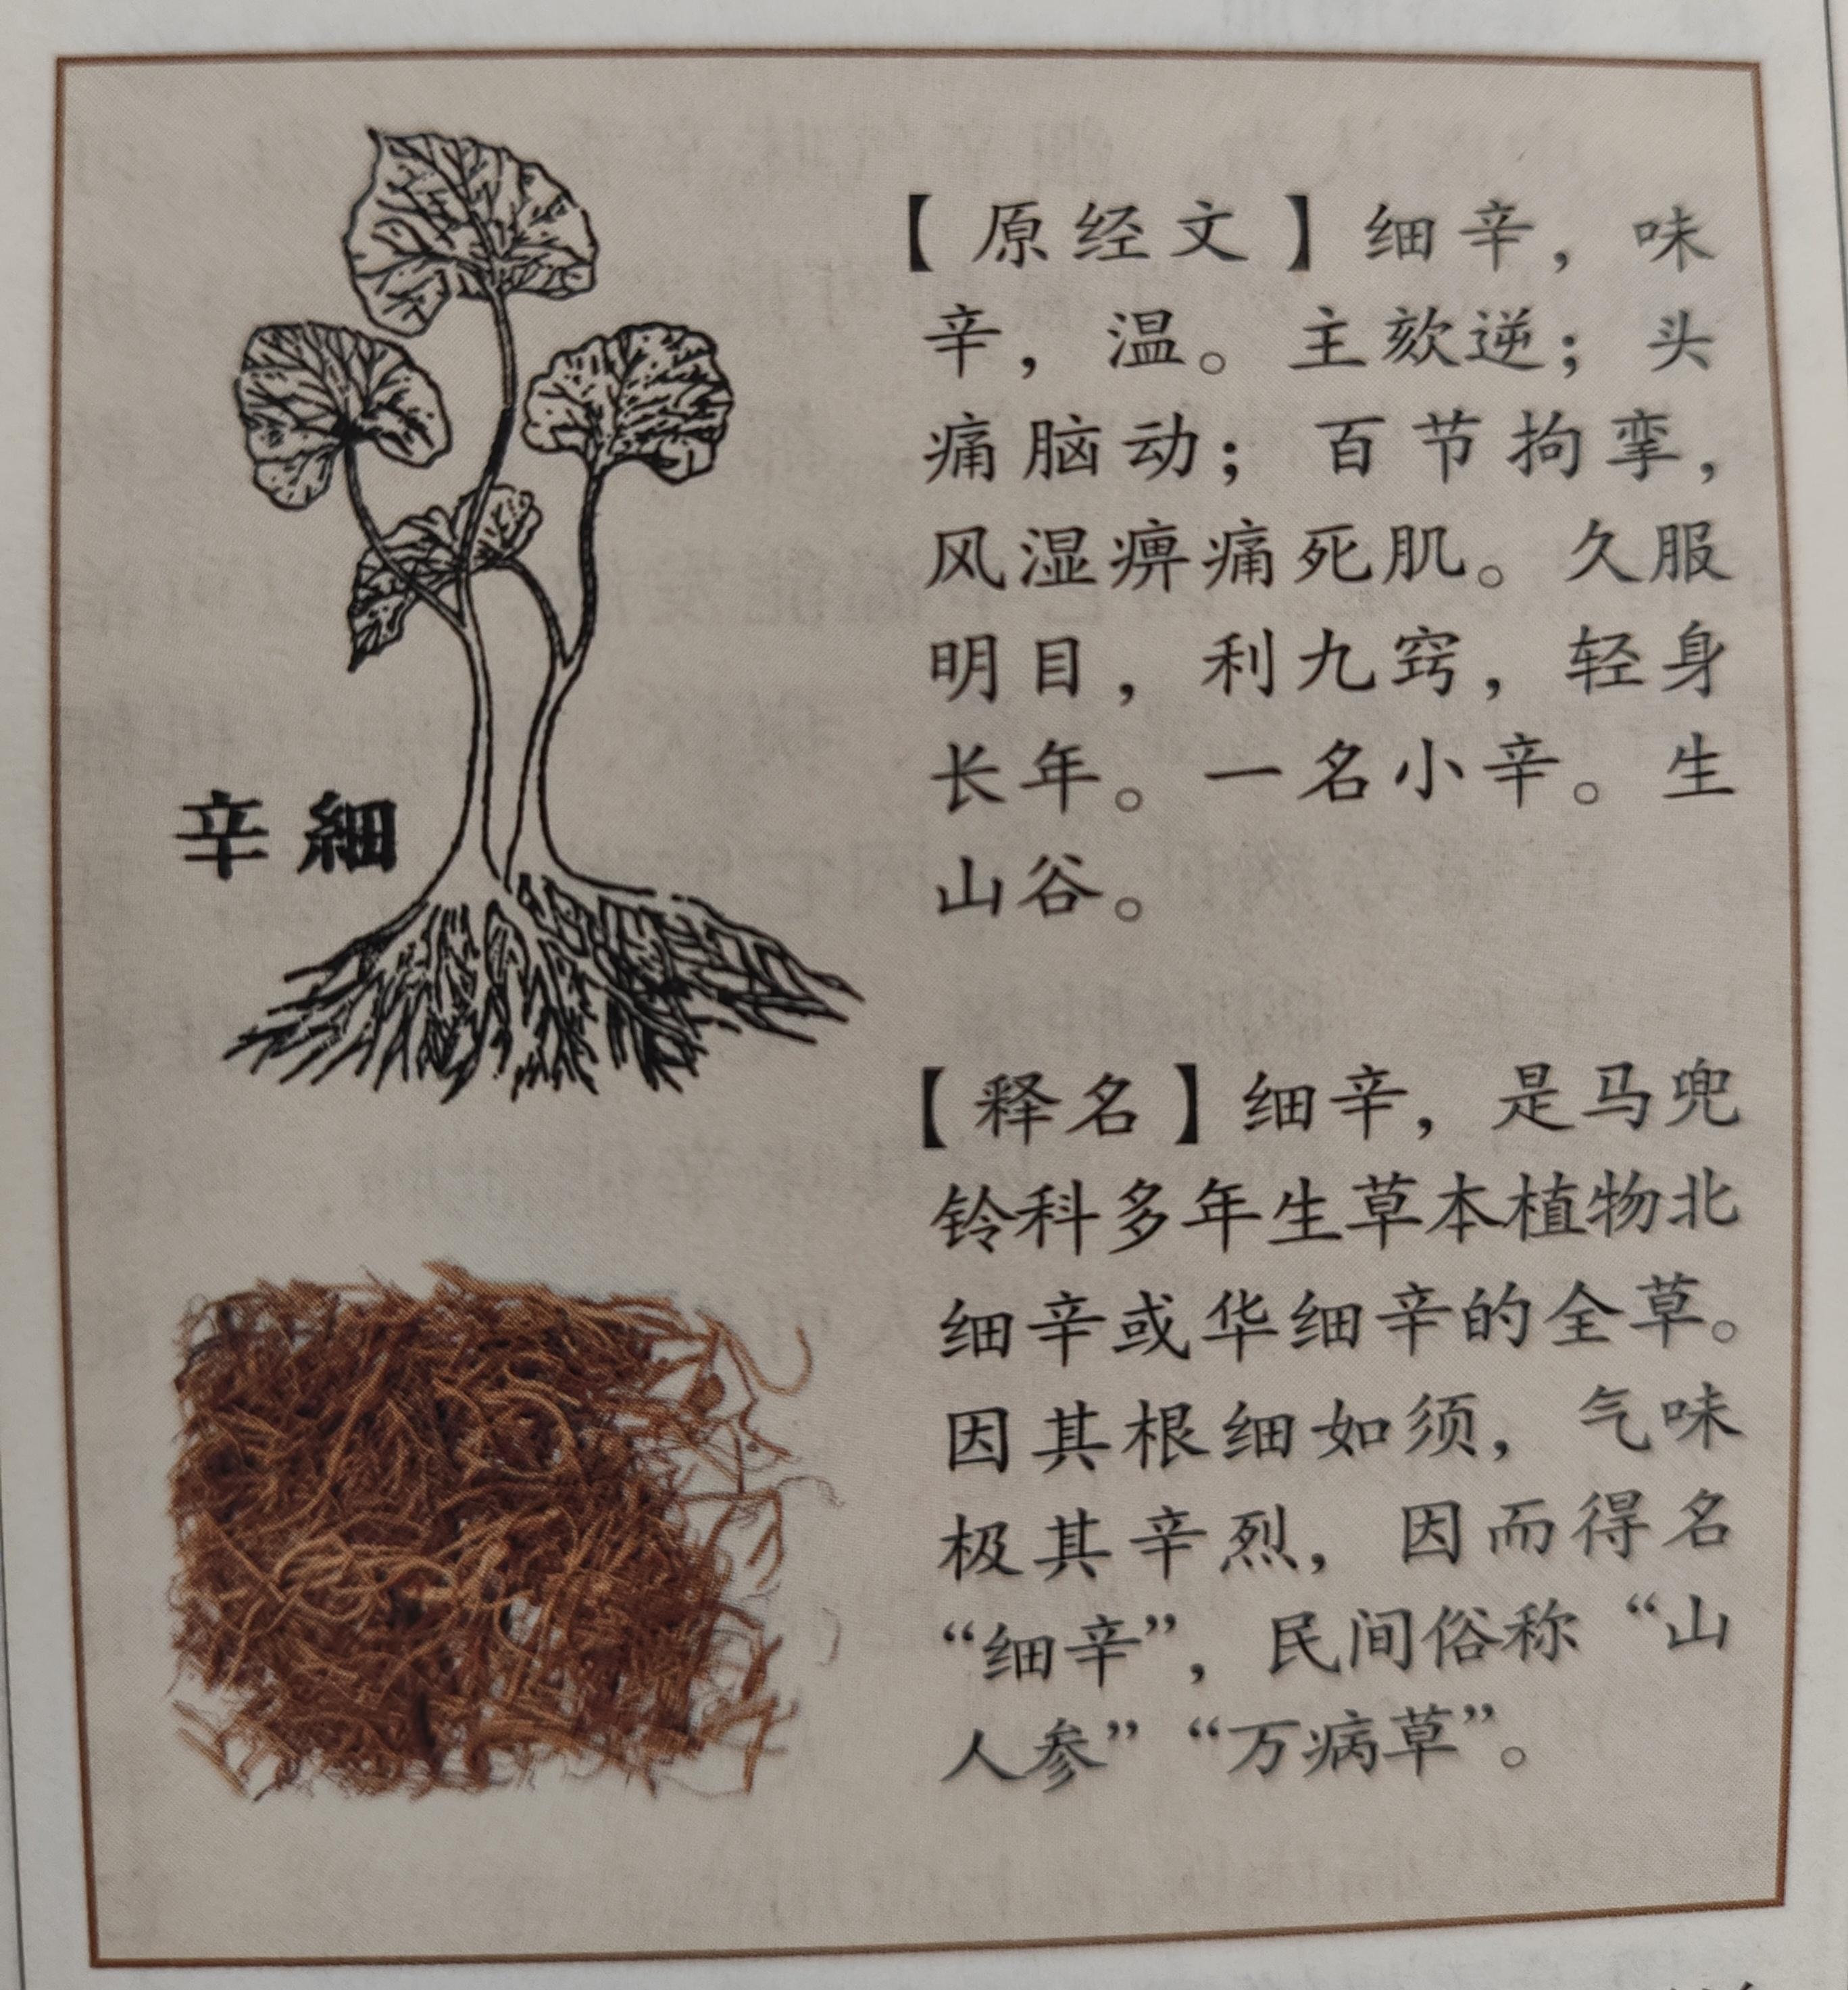 【原经文】细辛，味
辛，温。主欬逆；头
痛脑动；百节拘挛，
风湿痹痛死肌。久服
明目，利九窍，轻身
长年。一名小辛。生
山谷。
辛細
【释名】细辛，是马兜
铃科多年生草本植物北
细辛或华细辛的全草。
因其根细如须，气味
极其辛烈，因而得名
“细辛”，民间俗称“山
人参”“万病草”。